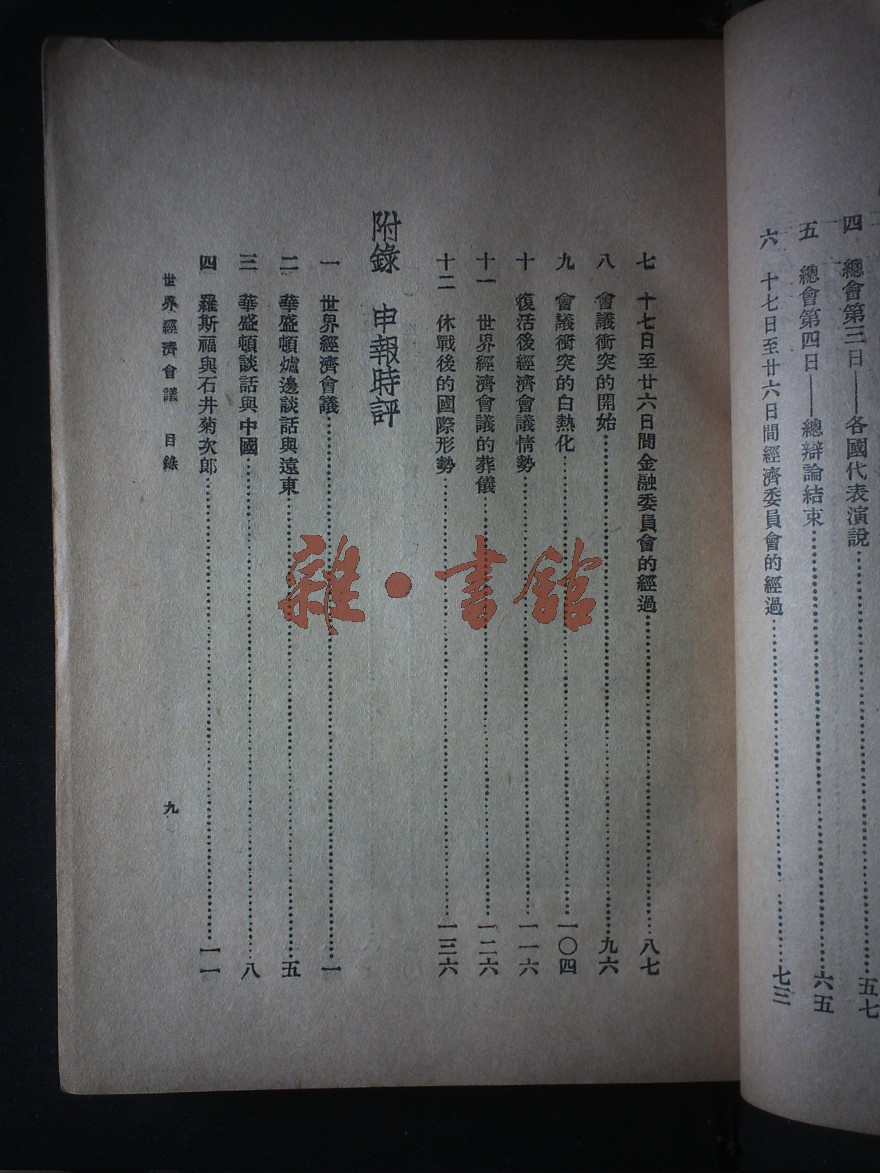 四　總會第三日——各國代表演說……五七
五　總會第四日——總辯論結束……六五
六　十七日至廿六日間經濟委員會的經過……七三
七　十七日至廿六日間金融委員會的經過……八七
八　會議衝突的開始……九六
九　會議衝突的白熱化……一〇四
十　復活後經濟會議情勢……一一六
十一　世界經濟會議的葬儀……一二六
十二　休戰後的國際形勢……一三六
附錄　申報時評
一　世界經濟會議……一
二　華盛頓爐邊談話與遠東……五
三　華盛頓談話與中國……八
四　羅斯福與石井菊次郎……一一
世界經濟會議　目錄
九
雜·書館